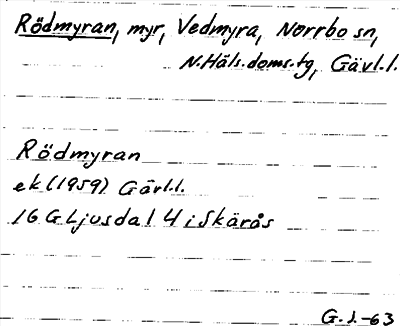 Rödmyran, myr, Vedmyra, Norrbo sn,
N.Häls.doms.tg, Gävl.l.
Rödmyran
ek (1959) Gävl.l.
16 G Ljusdal 4 i Skärås
G.I.-63